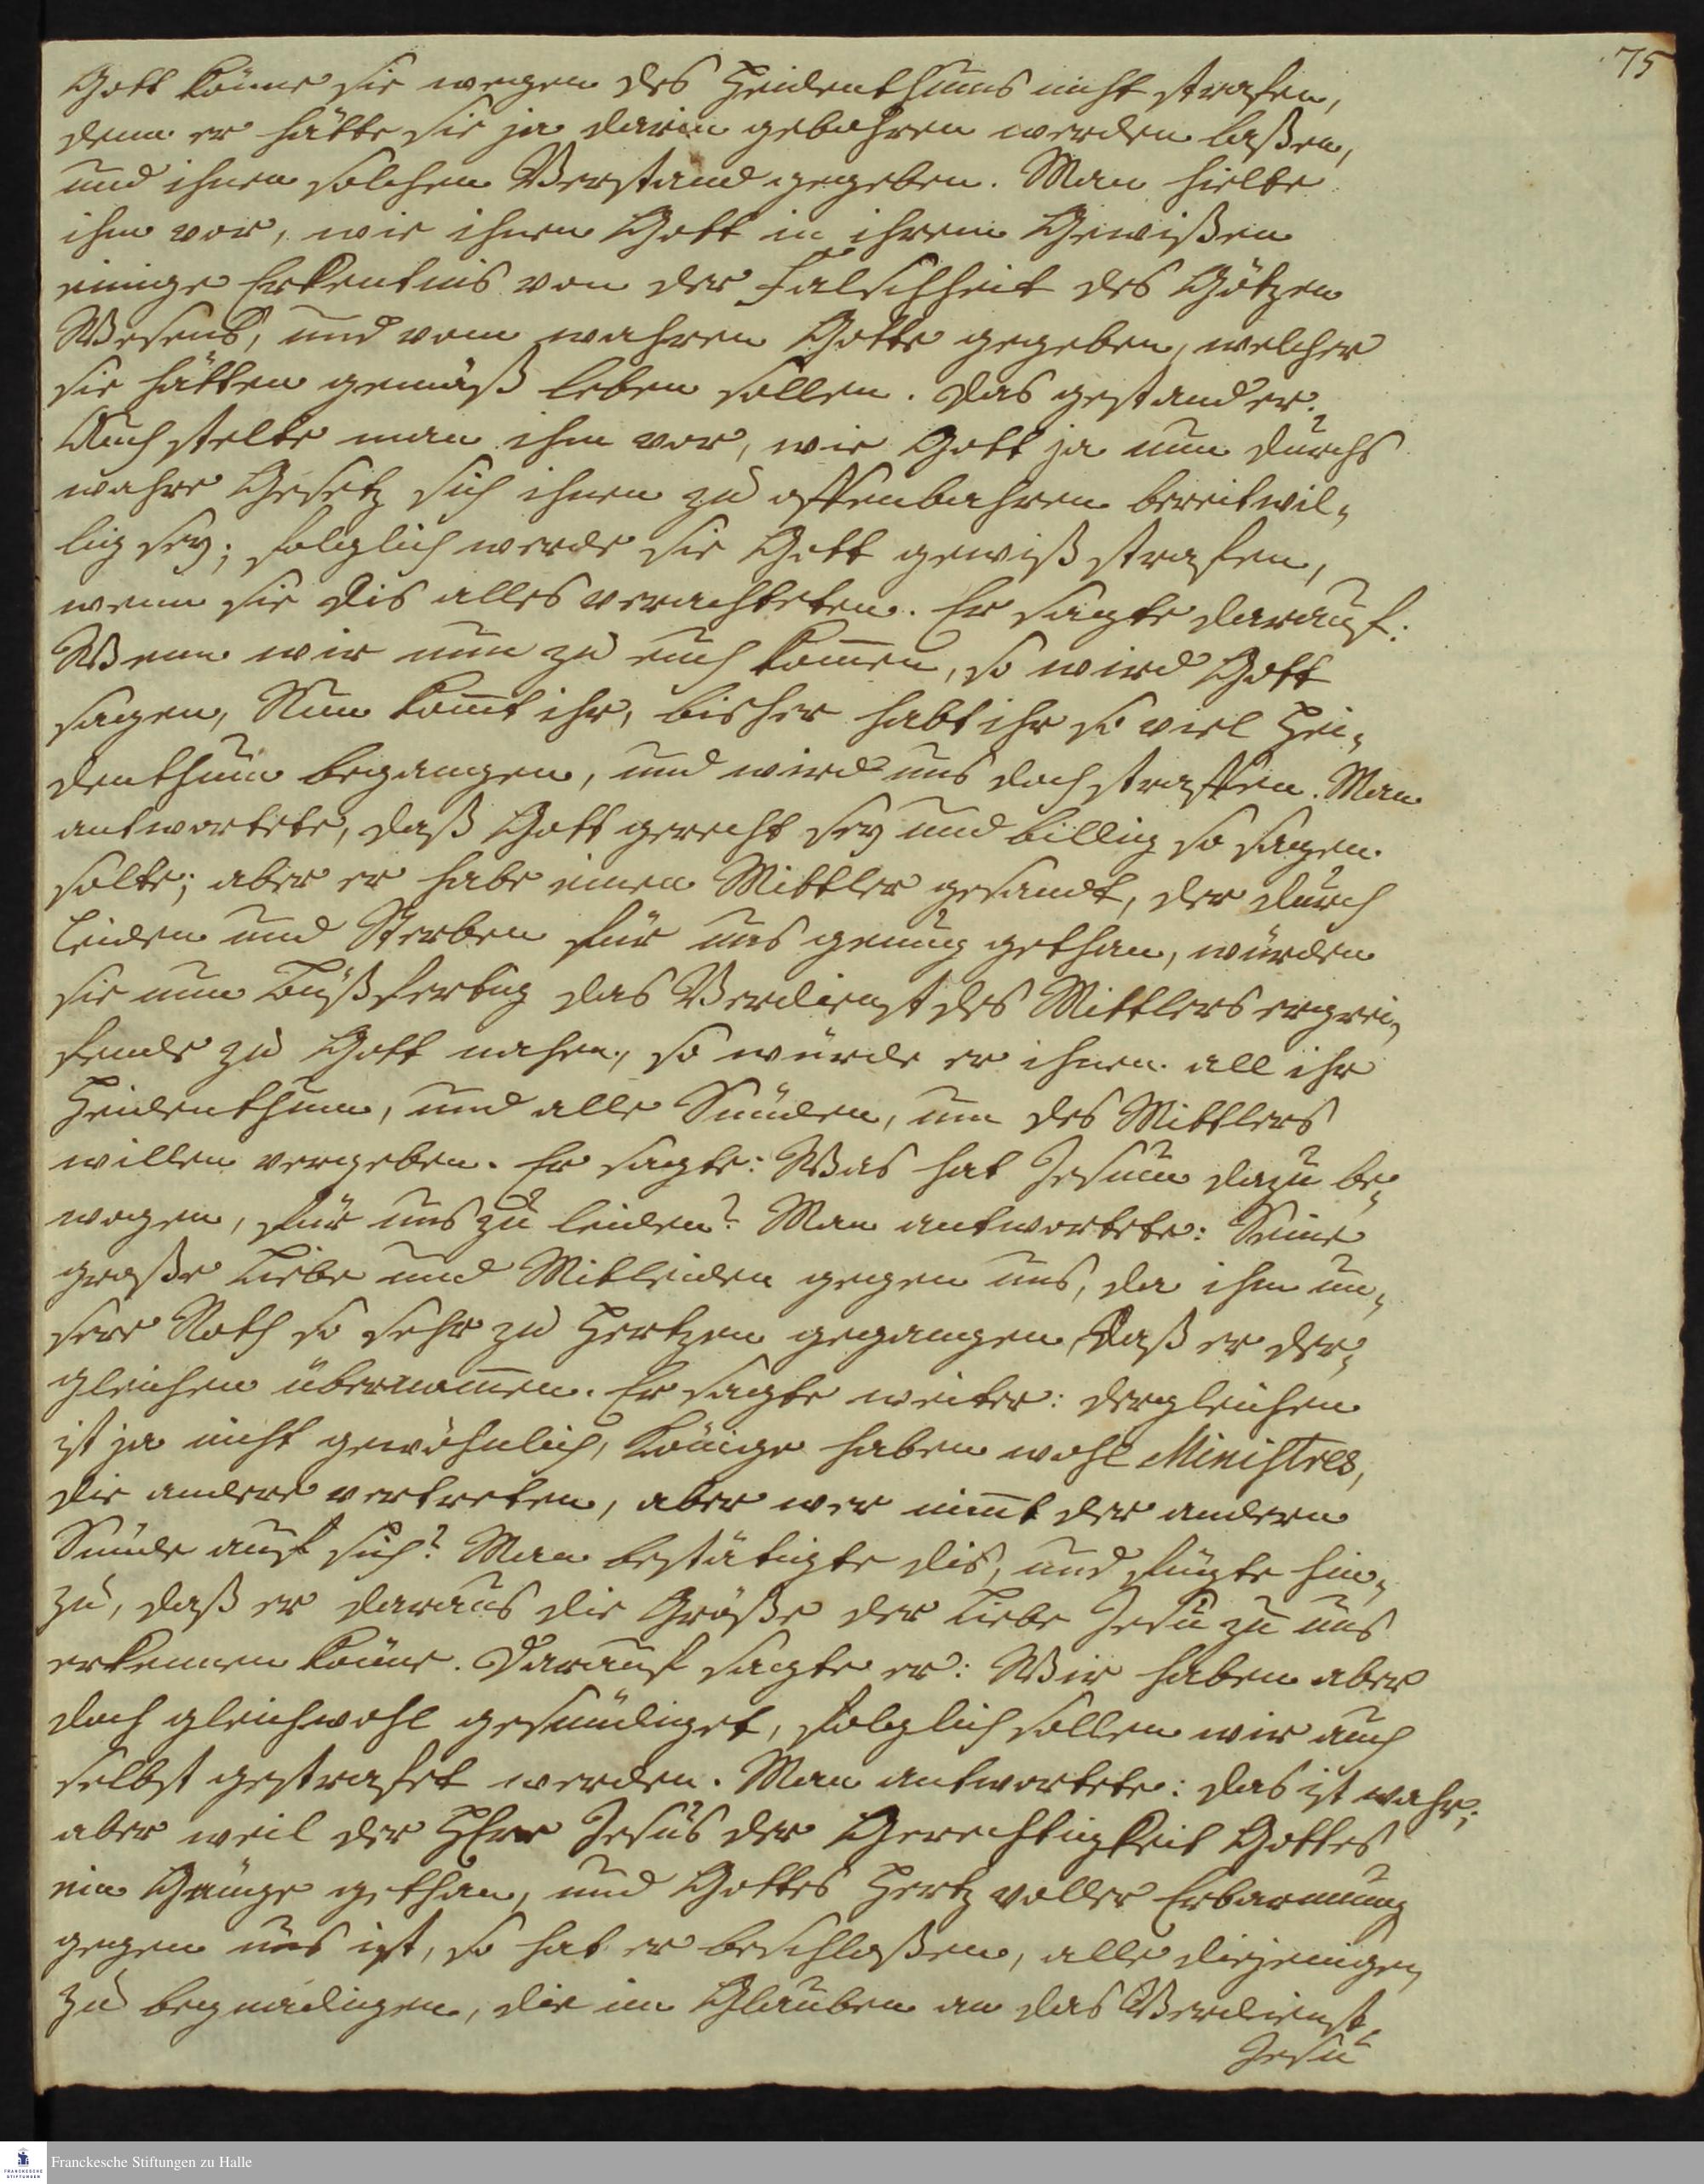 75
Gott könne sie wegen des Heidenthums nicht strafen,
denn er hätte sie ja darin gebohren werden laßen,
und ihnen solchen Verstand gegeben. Man hielte
ihm vor, wie ihnen Gott in ihrem Gewißen
einige Erkentnis von der Falschheit des Götzen
Wesens, und vom wahren Gotte gegeben, welcher
sie hätten gemäß leben sollen. Das gestand er.
Auch stelte man ihm vor, wie Gott ja nun durchs
wahre Gesetz sich ihnen zu offenbahren bereitwil-
lig sey; folglich werde sie Gott gewiß strafen,
wenn sie dis alles verachteten. Er sagte darauf:
Wenn wir nun zu euch kom̄en, so wird Gott
sagen, Nun kom̄t ihr, bisher habt ihr so viel Hei-
denthum begangen, und wird uns doch straffen. Man
antwortete, daß Gott gerecht sey und billig so sagen
solte; aber er habe einen Mittler gesandt, der durch
Leiden und Sterben für uns genug gethan, würden
sie nun bußfertig das Verdienst des Mittlers ergrei-
fende zu Gott nahen, so würde er ihnen all ihr
Heidenthum, und alle Sünden, um des Mittlers
willen vergeben. Er sagte: Was hat Jesum dazu be-
wogen, für uns zu leiden? Man antwortete: Seine
große Liebe und Mitleiden gegen uns, da ihm un-
sere Noth so sehr zu Hertzen gegangen, daß er der-
gleichen übernom̄en. Er sagte weiter: dergleichen
ist ja nicht gewöhnlich, Könige haben wohl Ministres,
die andere vertreten, aber wer nim̄t der andern
Sünde auf sich? Man bestätigte dis, und fügte hin-
zu, daß er daraus die Größe der Liebe Jesu zu uns
erkennen könne. Darauf sagte er: Wir haben aber
doch gleichwohl gesündiget, folglich sollen wir auch
selbst gestrafet werden. Man antwortete: das ist wahr;
aber weil der HErr Jesus der Gerechtigkeit Gottes
ein Gnüge gethan, und Gottes Hertz voller Erbarmung
gegen uns ist, so hat er beschloßen, alle diejenigen
zu begnadigen, die im Glauben an das Verdienst
Jesu
Franckesche Stiftungen zu Halle
FRANCKESCHE STIFTUNGEN